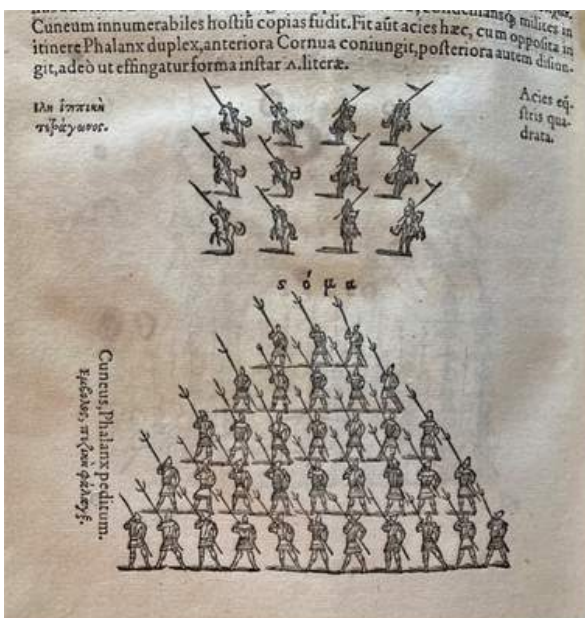 Cuneum innumerabiles hostiũ copias fudit. Fit aũt acies hæc, cum opposita in
itinere Phalanx duplex, anteriora Cornua coniungit, posteriora autem disiun-
git, adeò ut effingatur forma instar Λ. literæ.
ἴλη ἱππικὴ
τετράγωνος.
Acies eq̃-
stris qua-
drata.
ς ό μ α
Cuneus, Phalanx peditum.
Εμβολος, πεζικὴ φάλαγξ.